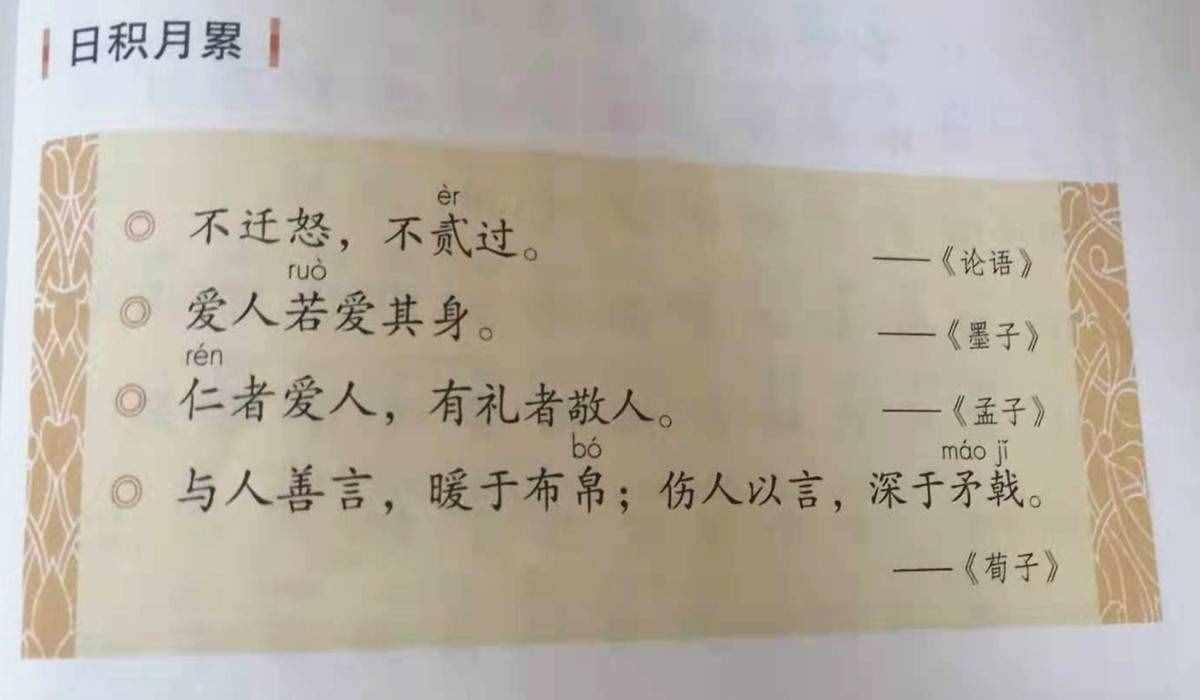 日积月累
èr
不迁怒，不贰过。
——《论语》
ruò
爱人若爱其身。
——《墨子》
rén
仁者爱人，有礼者敬人。
——《孟子》
bó máo jǐ
与人善言，暖于布帛；伤人以言，深于矛戟。
——《荀子》